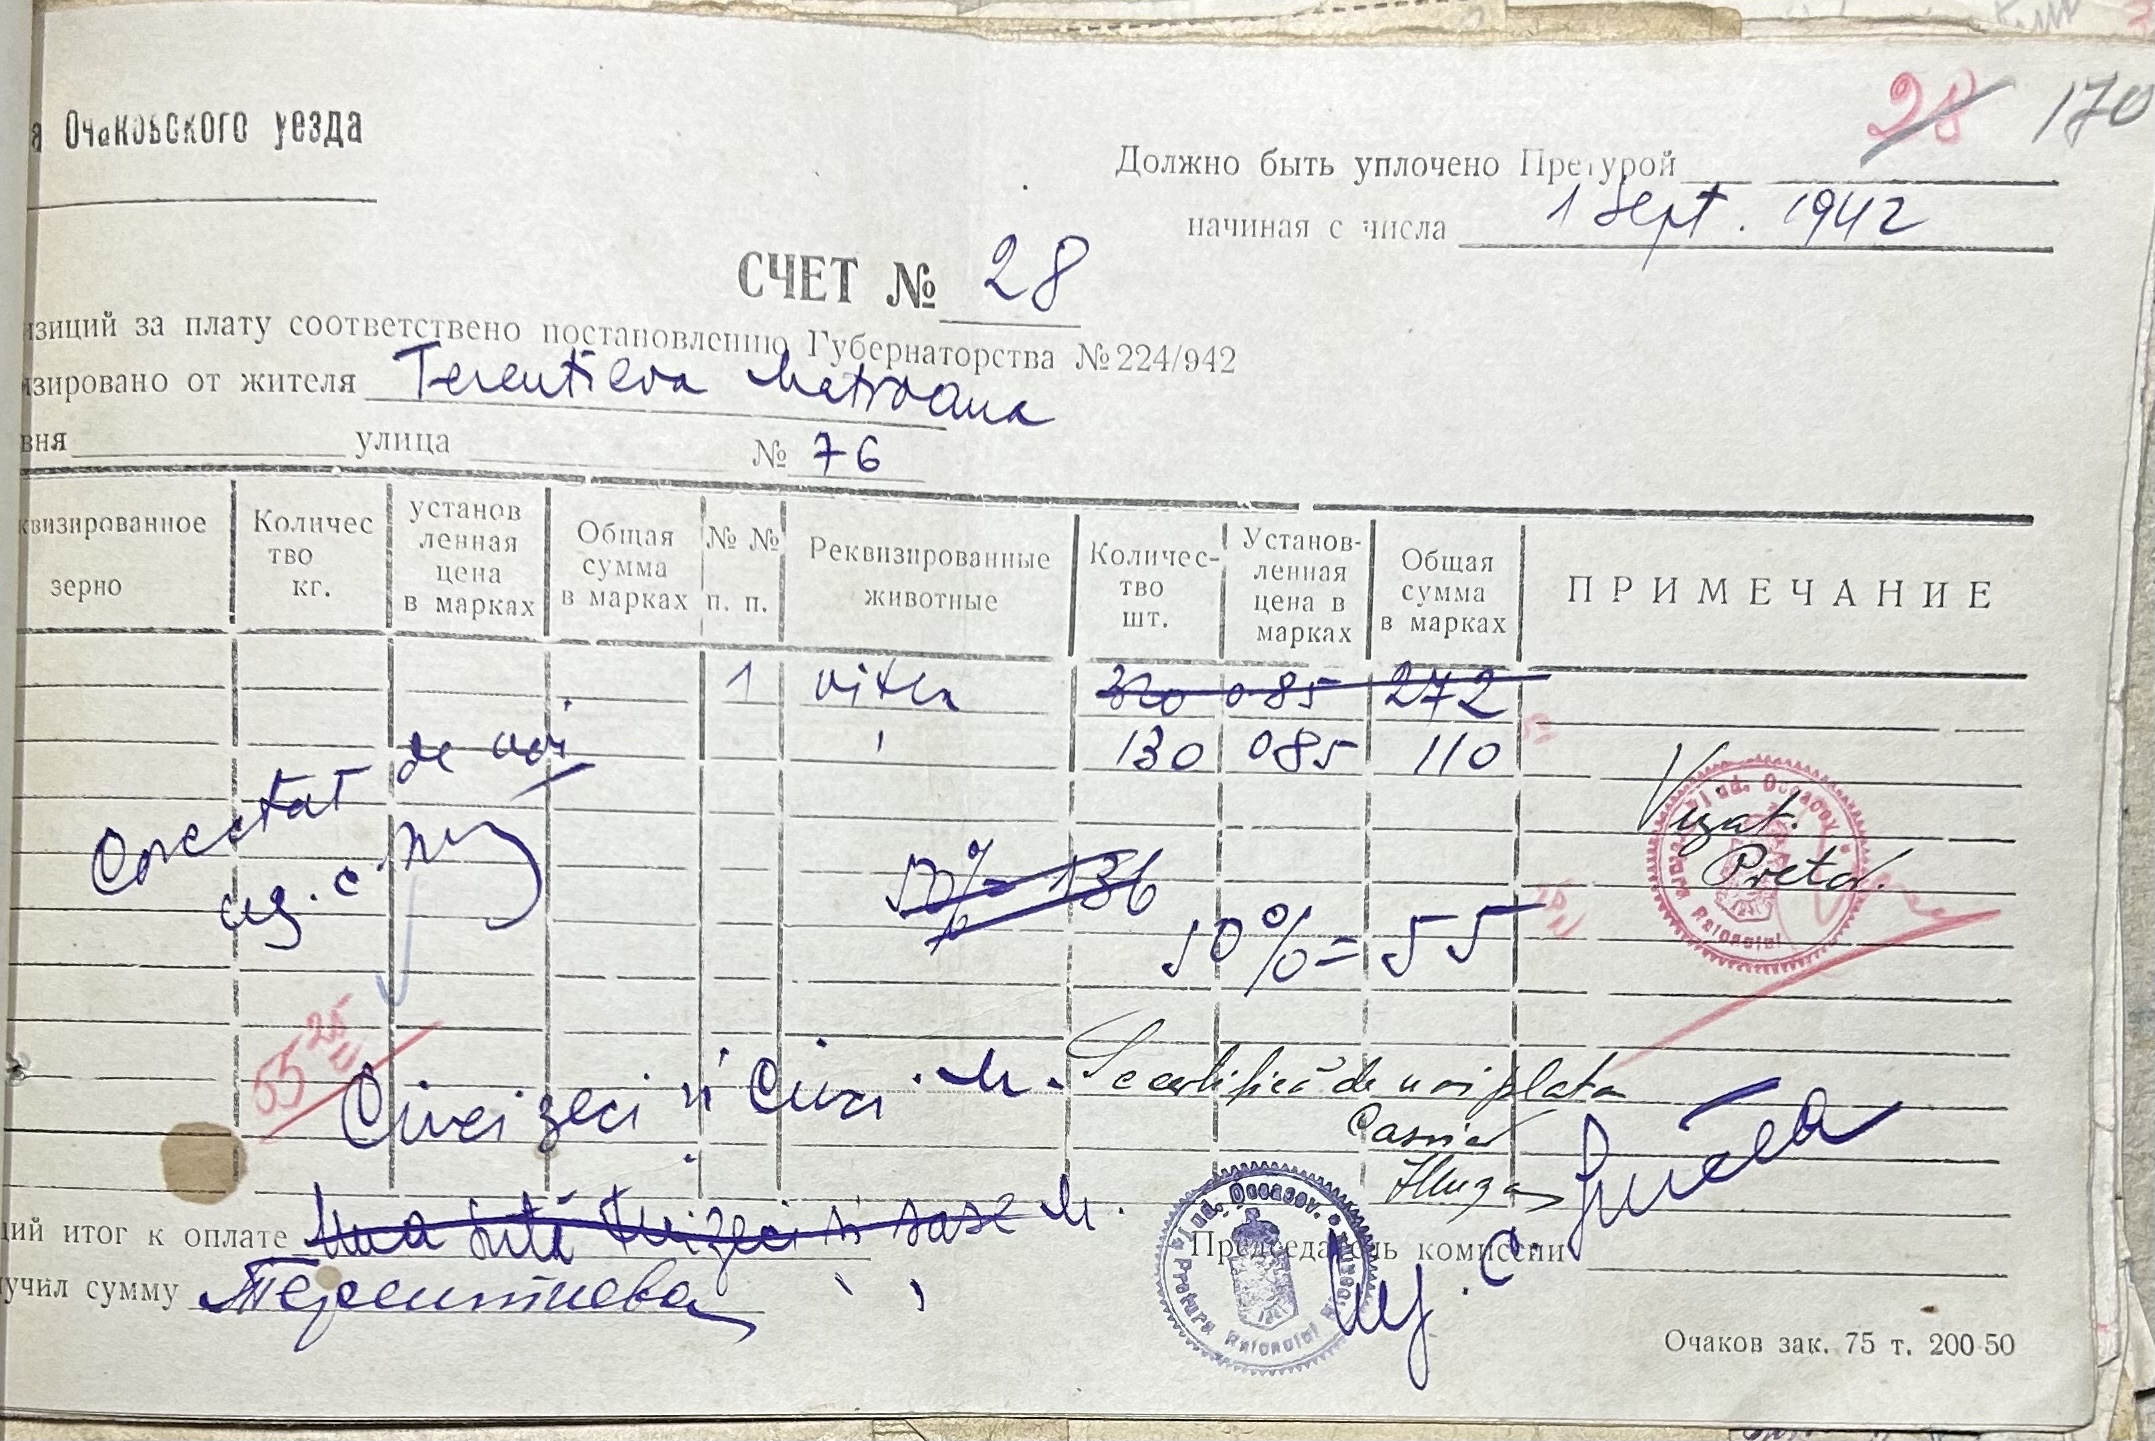 а Очаковского уезда
28 170
Должно быть уплочено Претурой
начиная с числа 1 Sept. 1942
СЧЕТ № 28
изиций за плату соответствено постановлению Губернаторства № 224/942
изировано от жителя Terentieva Matroana
вня улица № 76
квизированное зерно | Количес тво кг. | установ ленная цена в марках | Общая сумма в марках | № № п. п. | Реквизированные животные | Количес- тво шт. | Установ- ленная цена в марках | Общая сумма в марках | ПРИМЕЧАНИЕ
1 vitea 320 0.85 272
130 085 110
Corectat de noi
ag. c.
Vizat.
Pretor.
50% = 136
50% = 55
55 25
Cinci zeci si cinci M.
Se certifică de noi plata
Casier
щий итог к оплате una sută treizeci si sase M.
Председатель комиссии
учил сумму Терентиева
Jud. Oceacov. Pretura Raionului
Очаков зак. 75 т. 200-50